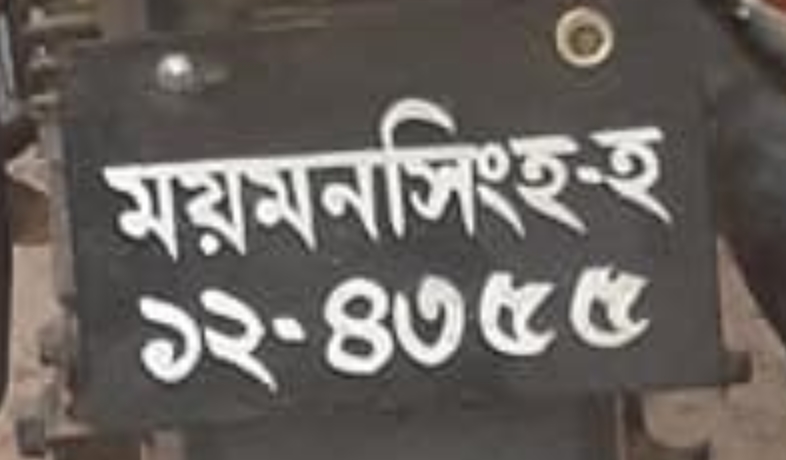 ময়মনসিংহ-হ
১২-৪৩৫৫